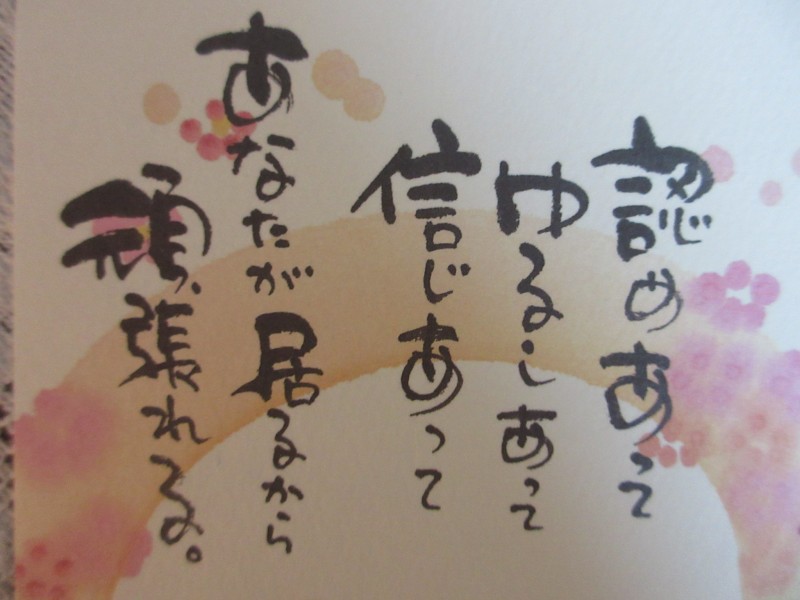 認めあって
ゆるしあって
信じあって
あなたが居るから
頑張れる。